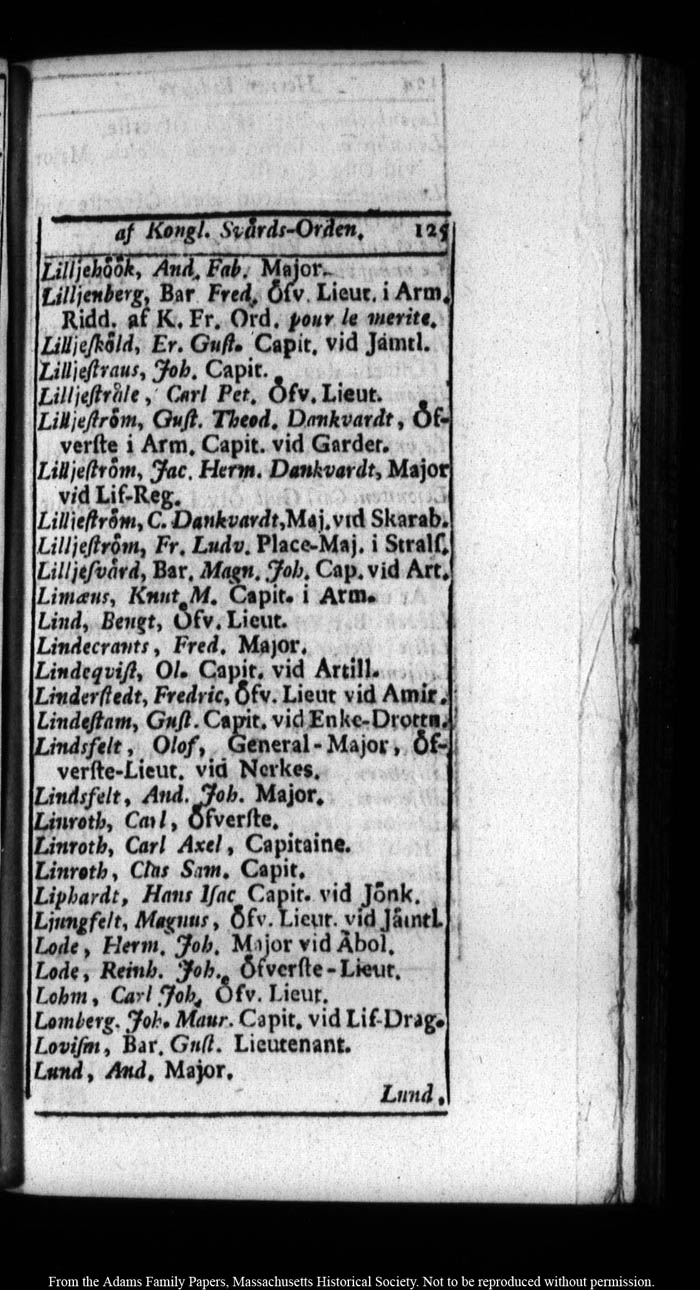 af Kongl. Svårds-Orden. 125
Lilljehöök, And. Fab. Major.
Lilljenberg, Bar. Fred. Öfv. Lieut. i Arm.
Ridd. af K. Fr. Ord. pour le merite.
Lilljeſköld, Er. Guſt. Capit. vid Jåmtl.
Lilljeſtraus, Joh. Capit.
Lilljeſtråle, Carl Pet. Öfv. Lieut.
Lilljeſtröm, Guſt. Theod. Dankvardt, Öf-
verſte i Arm. Capit. vid Garder.
Lilljeſtröm, Jac. Herm. Dankvardt, Major
vid Lif-Reg.
Lilljeſtröm, C. Dankvardt, Maj. vid Skarab.
Lilljeſtröm, Fr. Ludv. Place-Maj. i Stralſ.
Lilljeſvård, Bar. Magn. Joh. Cap. vid Art.
Limæus, Knut M. Capit. i Arm.
Lind, Bengt, Öfv. Lieut.
Lindecrants, Fred. Major.
Lindeqviſt, Ol. Capit. vid Artill.
Linderſtedt, Fredric, Öfv. Lieut vid Amir.
Lindeſtam, Guſt. Capit. vid Enke-Drottn.
Lindsfelt, Olof, General-Major, Öf-
verſte-Lieut. vid Nerkes.
Lindsfelt, And. Joh. Major.
Linroth, Carl, Öfverſte.
Linroth, Carl Axel, Capitaine.
Linroth, Clas Sam. Capit.
Liphardt, Hans Iſac Capit. vid Jönk.
Ljungfelt, Magnus, Öfv. Lieut. vid Jåmtl.
Lode, Herm. Joh. Major vid Åbol.
Lode, Reinh. Joh. Öfverſte-Lieut.
Lohm, Carl Joh. Öfv. Lieut.
Lomberg. Joh. Maur. Capit. vid Lif-Drag.
Loviſin, Bar. Guſt. Lieutenant.
Lund, And. Major.
Lund.
From the Adams Family Papers, Massachusetts Historical Society. Not to be reproduced without permission.